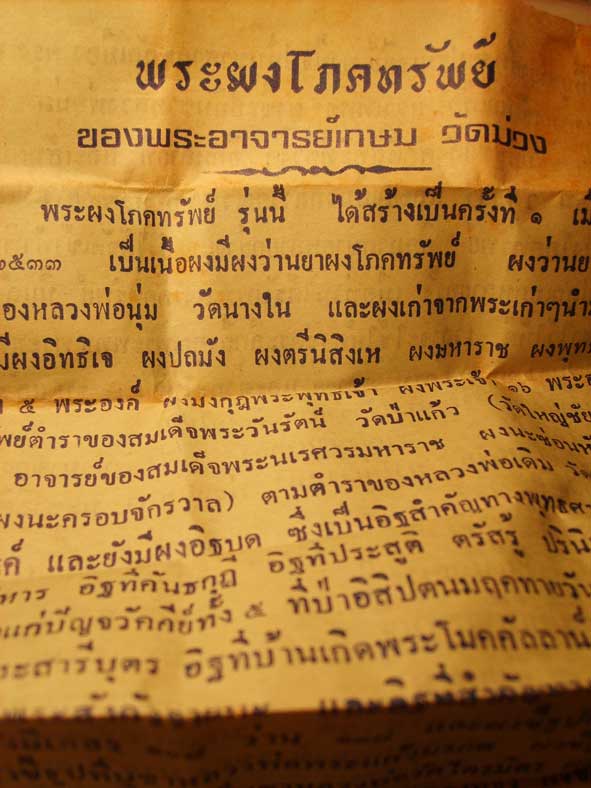 พระผงโภคทรัพย์
ของพระอาจารย์เกษม วัดม่วง
พระผงโภคทรัพย์ รุ่นนี้ ได้สร้างเป็นครั้งที่ ๑
๒๕๓๓ เป็นเนื้อผงมีผงว่านยาผงโภคทรัพย์ ผงว่านย
องหลวงพ่อนุ่ม วัดนางใน และผงเก่าจากพระเก่าๆนำม
มีผงอิทธิเจ ผงปถมัง ผงตรีนิสิงเห ผงมหาราช ผงพุทธ
๕ พระองค์ ผงมงกุฎพระพุทธเจ้า ผงพระเจ้า ๑๖ พระอ
พย์ตำราของสมเด็จพระวันรัตน์ วัดป่าแก้ว (วัดใหญ่ชัย
อาจารย์ของสมเด็จพระนเรศวรมหาราช ผงนะซ่อนห
ผงนะครอบจักรวาล) ตามตำราของหลวงพ่อเดิม วัด
ค์ และยังมีผงอิฐบด ซึ่งเป็นอิฐสำคัญทางพุทธศา
หาร อิฐที่คันธกุฎี อิฐที่ประสูติ ตรัสรู้ ปรินิ
แก่ปัญจวัคคีย์ทั้ง ๕ ที่ป่าอิสิปตนมฤคทายวัน
ระสารีบุตร อิฐที่บ้านเกิดพระโมคคัลลาน์